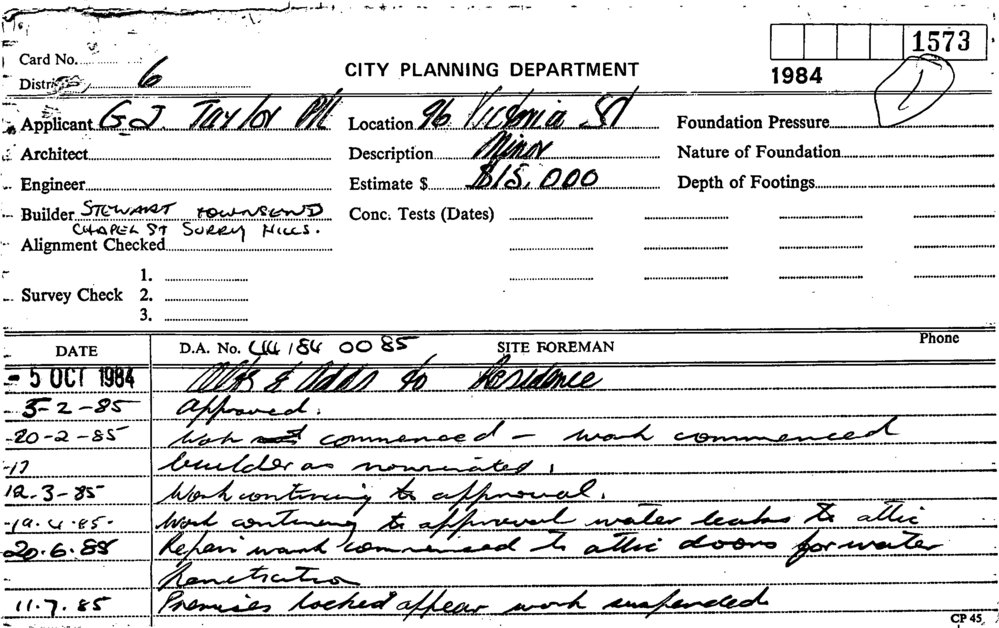 1573
Card No.
CITY PLANNING DEPARTMENT
1984
1
District 6
Applicant G.J. Taylor P/L Location 96 Victoria St Foundation Pressure
Architect Description Minor Nature of Foundation
Engineer Estimate $ $15,000 Depth of Footings
Builder STEWART TOWNSEND Conc. Tests (Dates)
CHAPEL ST SURRY HILLS.
Alignment Checked
1.
Survey Check 2.
3.
DATE D.A. No. 44/84 0085 SITE FOREMAN Phone
- 5 OCT 1984 Alts & Adds to Residence
5-2-85 Approved.
20-2-85 commenced - work commenced
builder as nominated.
12.3-85 Work continuing to approval.
19.4.85. Work continuing to approval water leaks to attic
20.6.85 Repair work commenced to attic doors for water
Penetration
11.7.85 Premises locked appear work suspended
CP 45